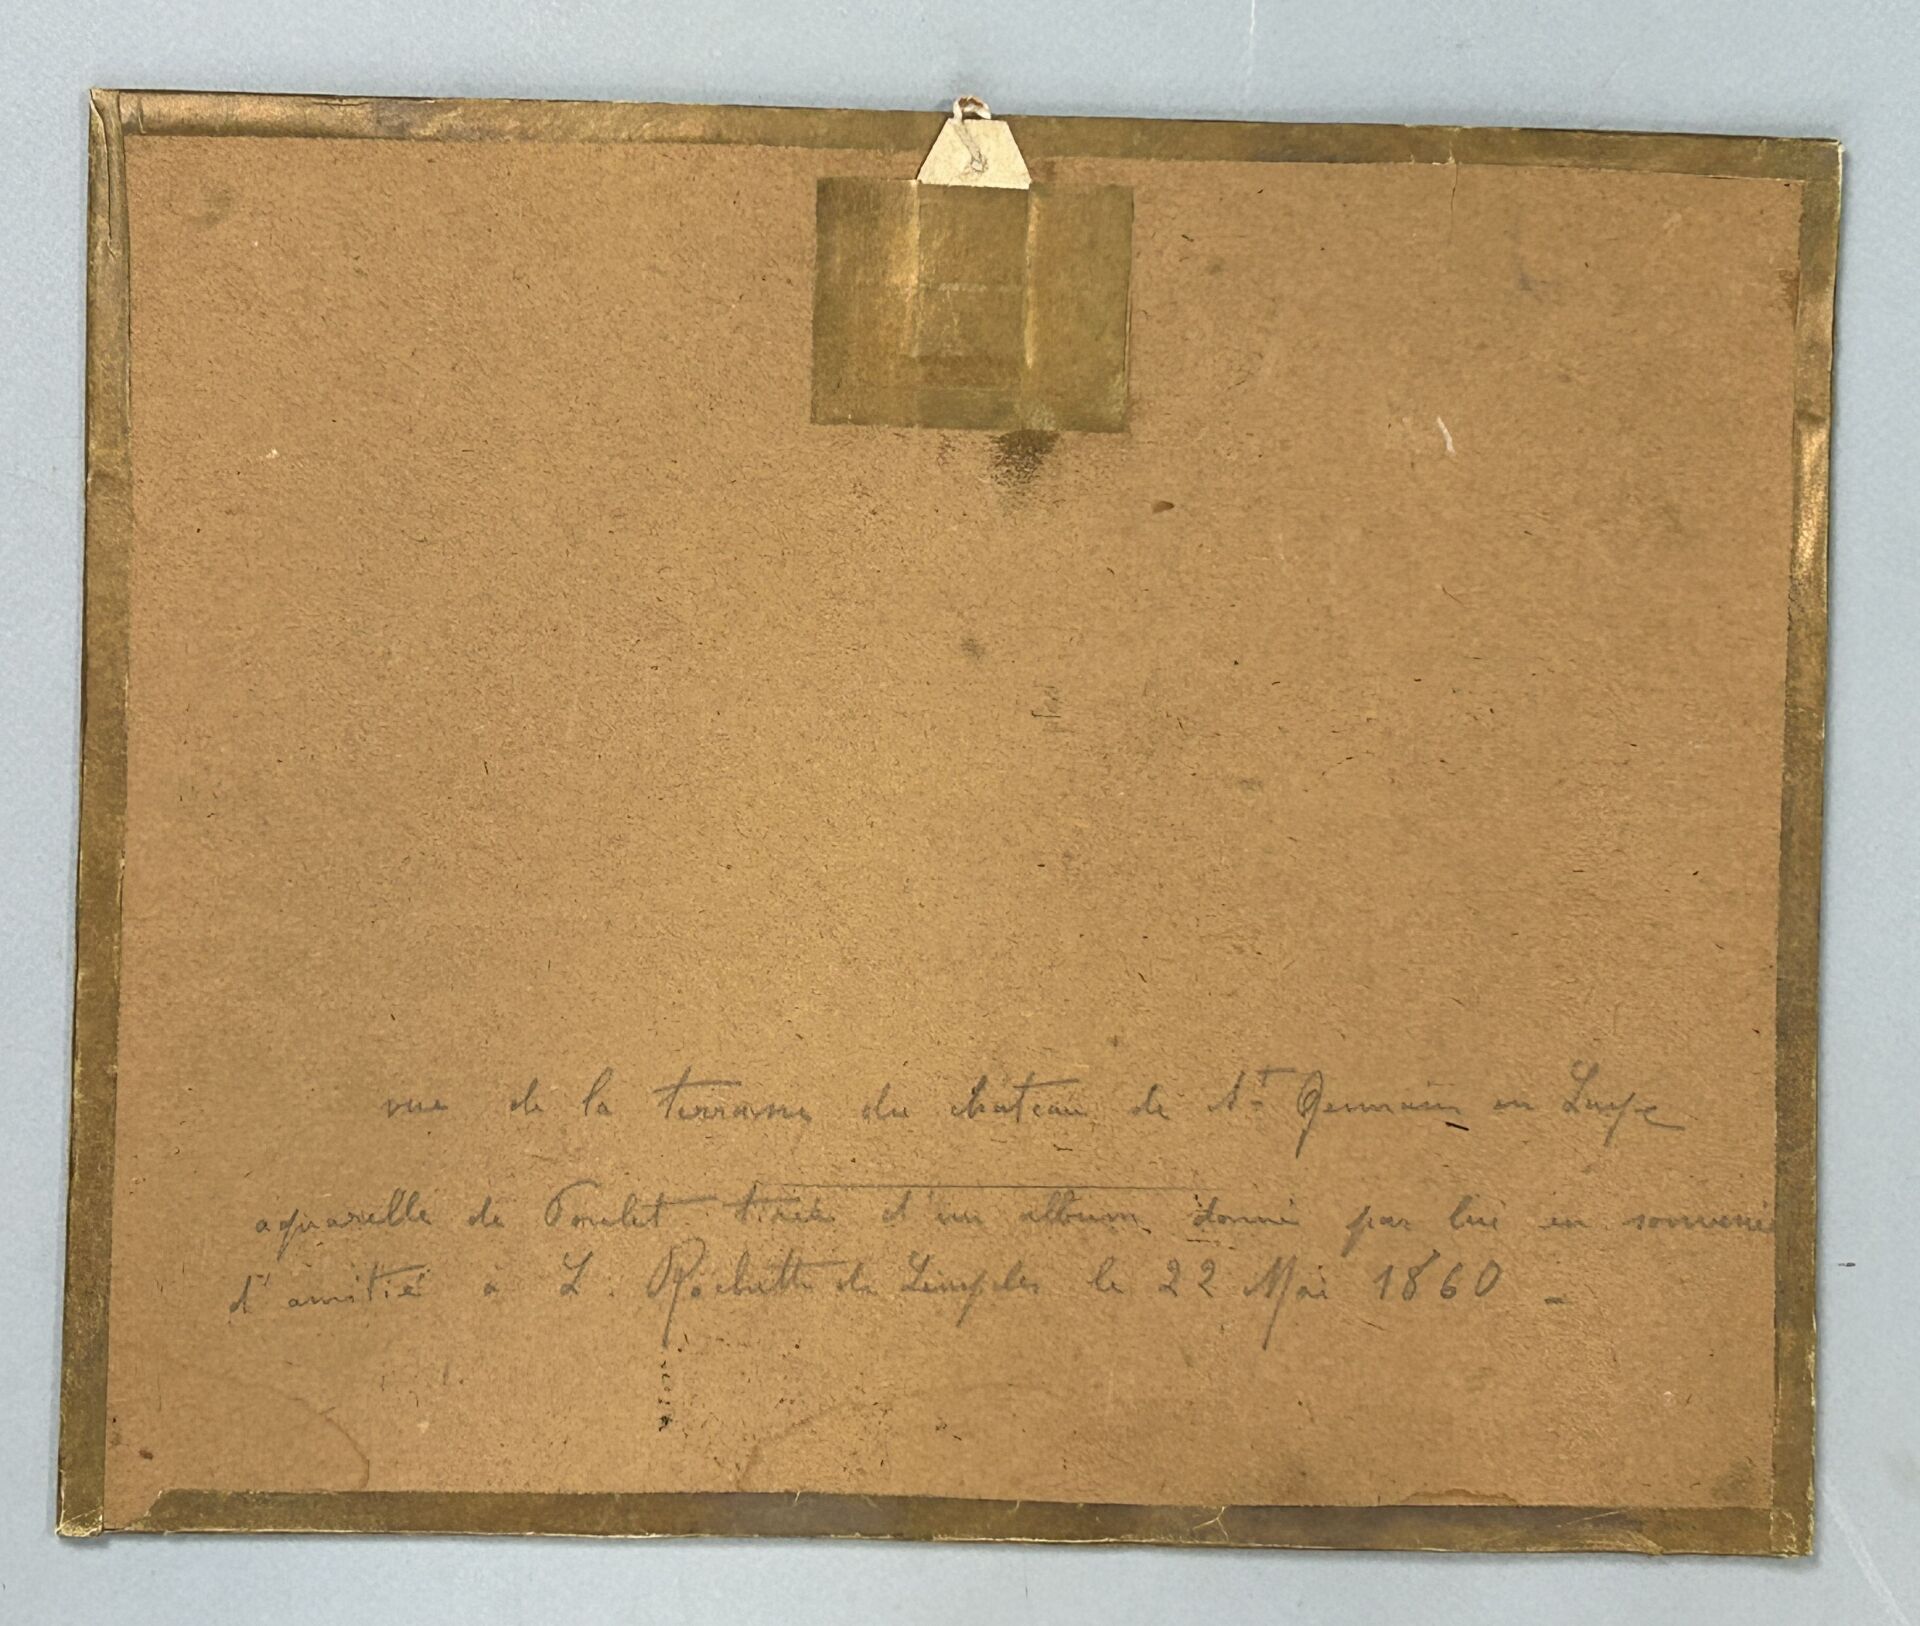 vue de la terrasse du château de St Germain en Laye
aquarelle de Poulet tirée d'un album donné par lui en souvenir
d'amitié à L. Rochette de Lempdes le 22 Mai 1860 _